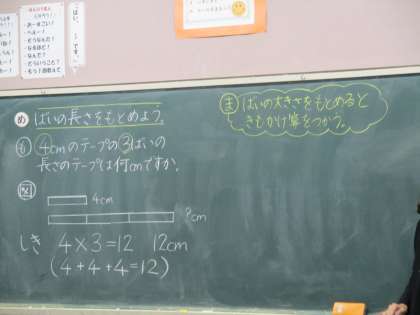 め ばいの長さをもとめよう。
も 4cmのテープの3ばいの
長さのテープは何cmですか。
図
4cm
?cm
しき 4×3=12 12cm
(4+4+4=12)
ま ばいの大きさをもとめると
きもかけ算をつかう。